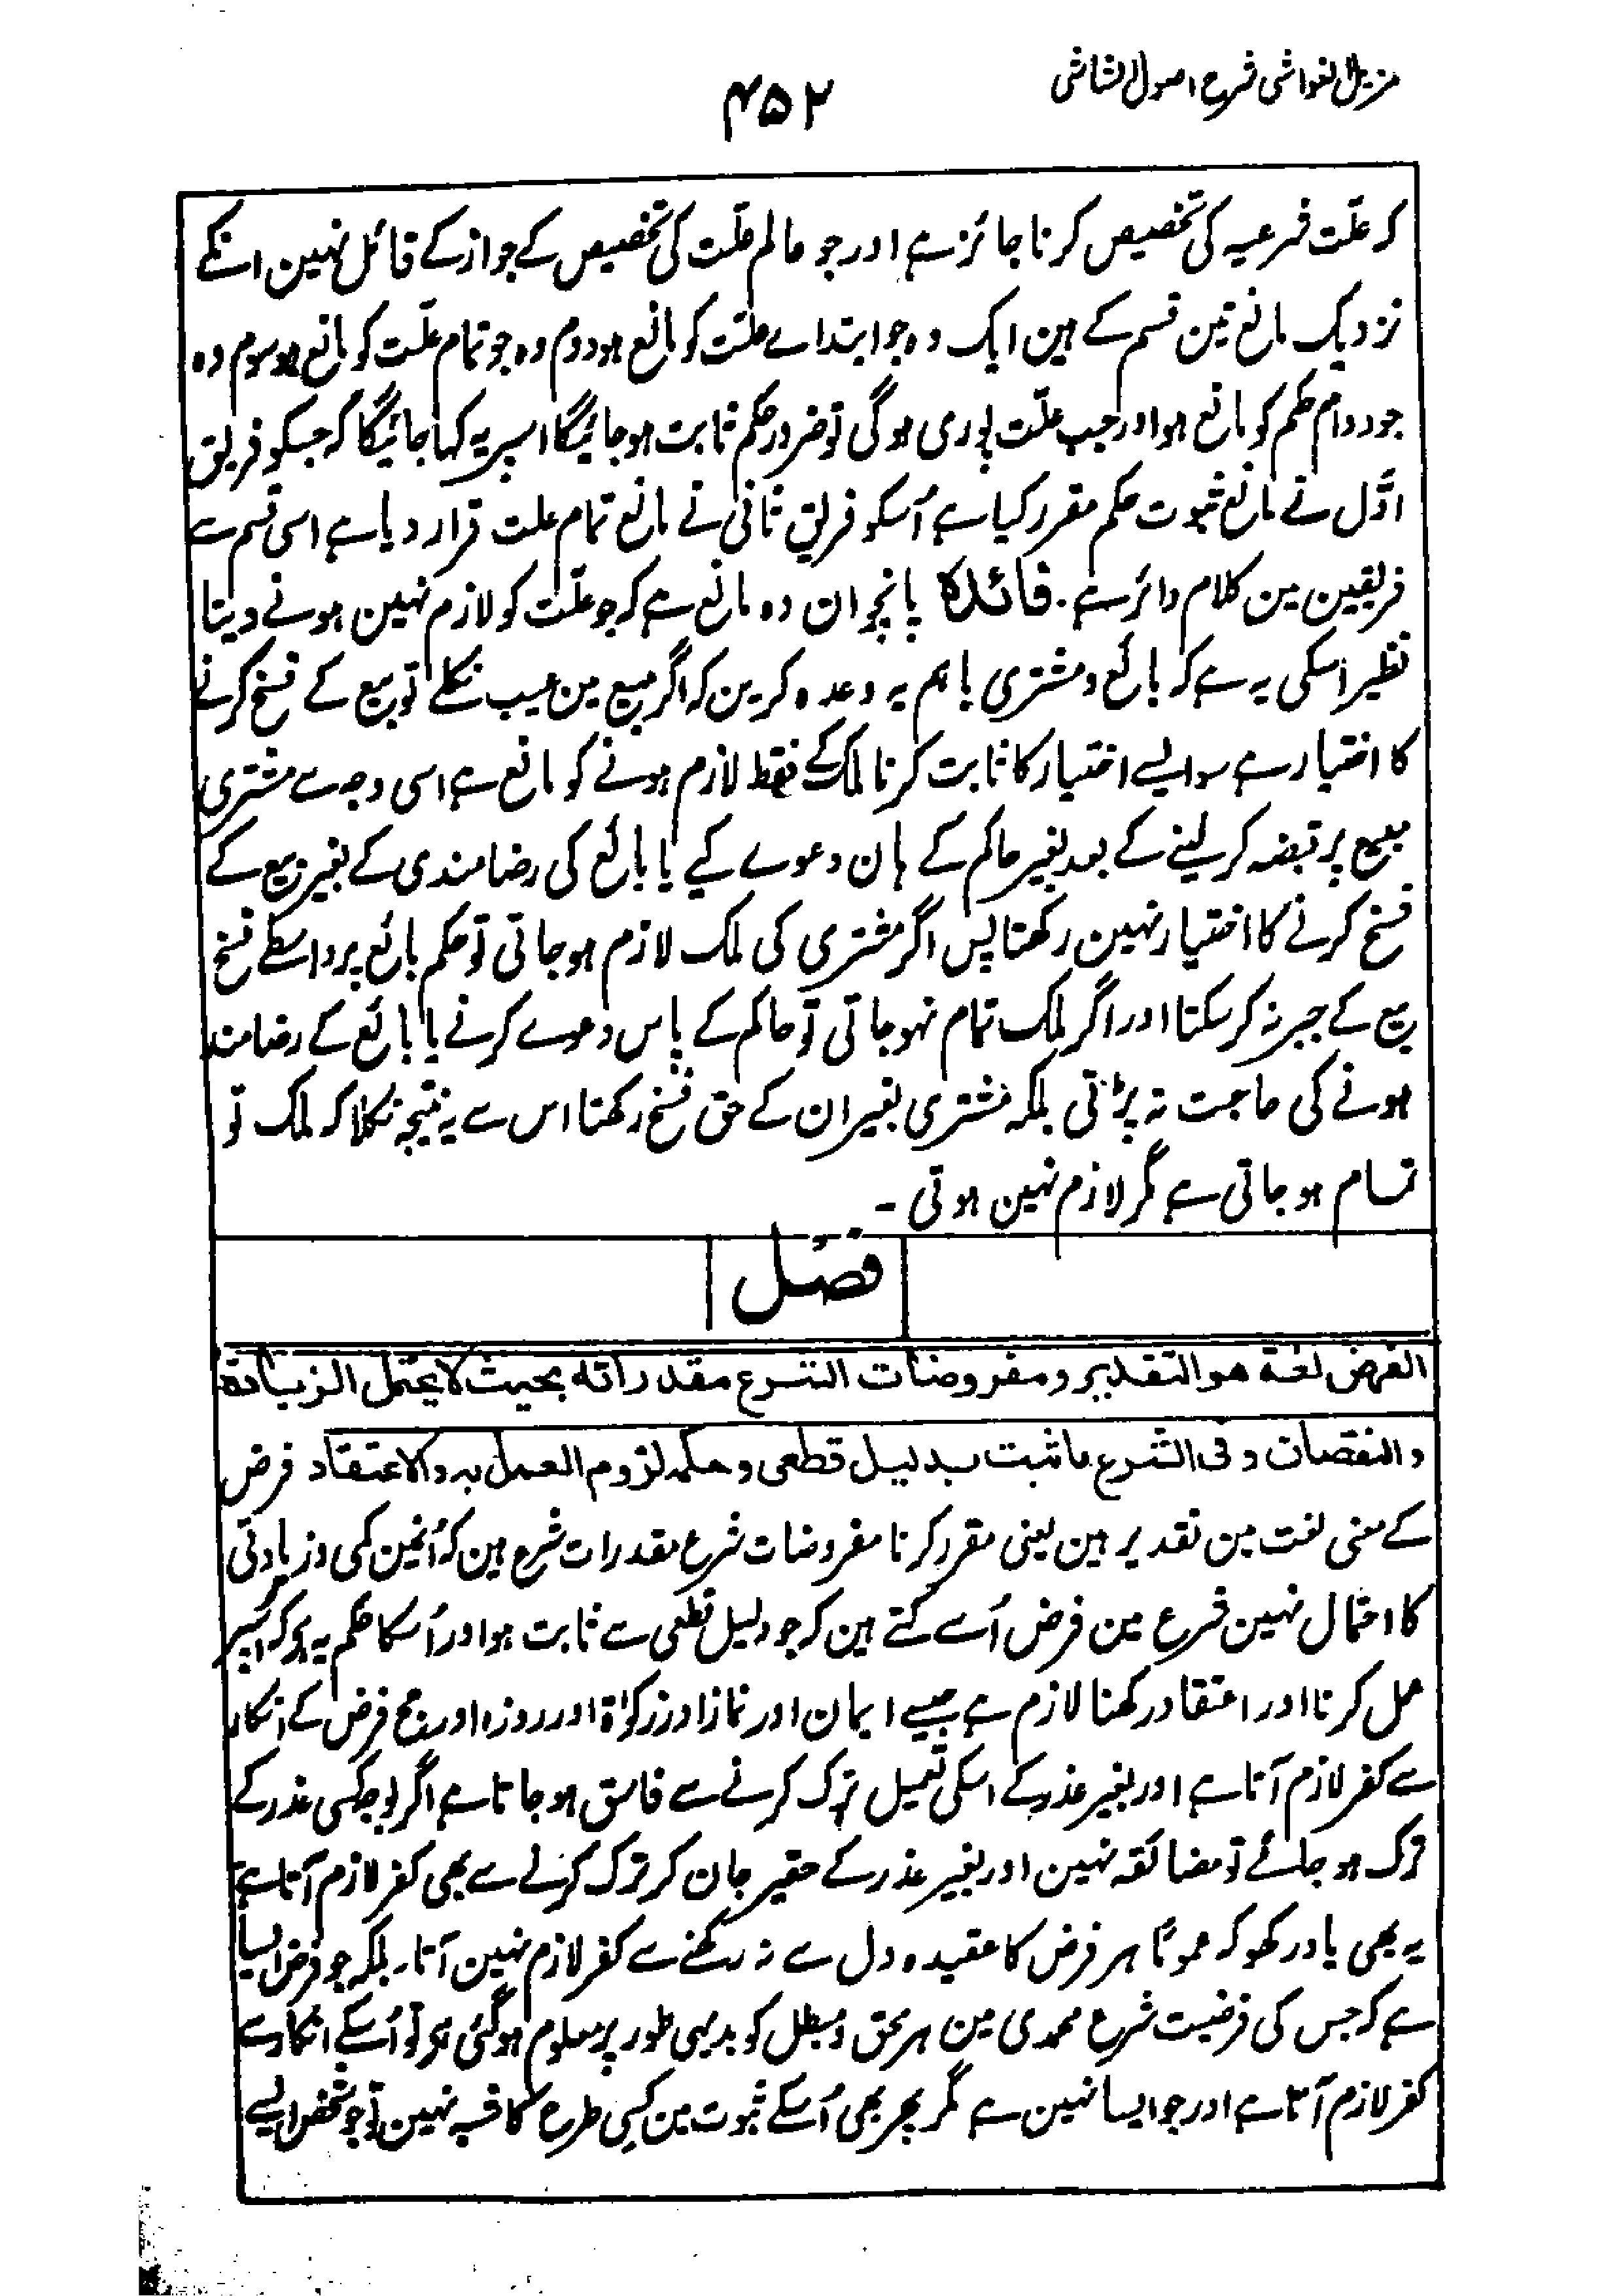 مزیل الغواشی شرح اصول الشاشی
۴۵۲
کہ علّت شرعیہ کی تخصیص کرنا جائز ہے اور جو عالم علّت کی تخصیص کے جواز کے قائل نہین انکے
نزدیک مانع تین قسم کے ہین ایک وہ جو ابتداے علّت کو مانع ہو دوم وہ جو تمام علّت کو مانع ہو سوم وہ
جو دوام حکم کو مانع ہو اور جب علّت پوری ہوگی تو ضرور حکم ثابت ہو جائیگا اسپر یہ کہا جائیگا کہ جسکو فریق
اوّل نے مانع ثبوت حکم مقرر کیا ہے اُسکو فریق ثانی نے مانع تمام علت قرار دیا ہے اسی قسم سے
فریقین مین کلام دائر ہے۔ فائدہ پانچوان وہ مانع ہے کہ جو علّت کو لازم نہین ہونے دیتا
نظیر اسکی یہ ہے کہ بائع و مشتری باہم یہ وعدہ کرین کہ اگر مبیع مین عیب نکلے تو بیع کے فسخ کرنے
کا اختیار ہے سو ایسے اختیار کا ثابت کرنا ملک کے فقط لازم ہونے کو مانع ہے اسی وجہ سے مشتری
مبیع پر قبضہ کر لینے کے بعد بغیر حاکم کے ہان دعوے کیے یا بائع کی رضامندی کے بغیر بیع کے
فسخ کرنے کا اختیار نہین رکھتا پس اگر مشتری کی ملک لازم ہو جاتی تو حکم بائع پر واسطے فسخ
بیع کے جبر نہ کر سکتا اور اگر ملک تمام نہو جاتی تو حاکم کے پاس دعوے کرنے یا بائع کے رضامند
ہونے کی حاجت نہ پڑتی بلکہ مشتری بغیر ان کے حق فسخ رکھتا اس سے یہ نتیجہ نکلا کہ ملک تو
تمام ہو جاتی ہے مگر لازم نہین ہوتی -
فصل
الفرض لغة هو التقدير ومفروضات الشرع مقدراته بحيث لا يحتمل الزيادة
والنقصان وفى الشرع ما ثبت بدليل قطعى وحكمه لزوم العمل به والاعتقاد فرض
کے معنی لغت مین تقدیر ہین یعنی مقرر کرنا مفروضات شرع مقدرات شرع ہین کہ اُنمین کمی و زیادتی
کا احتمال نہین شرع مین فرض اُسے کہتے ہین کہ جو دلیل قطعی سے ثابت ہو اور اُسکا حکم یہ ہے کہ اسپر
عمل کرنا اور اعتقاد رکھنا لازم ہے جیسے ایمان اور نماز اور زکوٰۃ اور روزہ اور حج فرض کے انکار
سے کفر لازم آتا ہے اور بغیر عذر کے اسکی تعمیل ترک کرنے سے فاسق ہو جاتا ہے اگر بوجہ کسی عذر کے
ترک ہو جائے تو مضائقہ نہین اور بغیر عذر کے حقیر جان کر ترک کرنے سے بھی کفر لازم آتا ہے
یہ بھی یاد رکھو کہ عمومًا ہر فرض کا عقیدہ دل سے نہ رکھنے سے کفر لازم نہین آتا۔ بلکہ جو فرض ایسا
ہے کہ جس کی فرضیت شرع محمدی مین ہر محق و مبطل کو بدیہی طور پر معلوم ہو گئی ہو تو اُسکے انکار سے
کفر لازم آتا ہے اور جو ایسا نہین ہے مگر پھر بھی اُسکے ثبوت مین کسی طرح کا شبہ نہین تو جو شخص ایسے